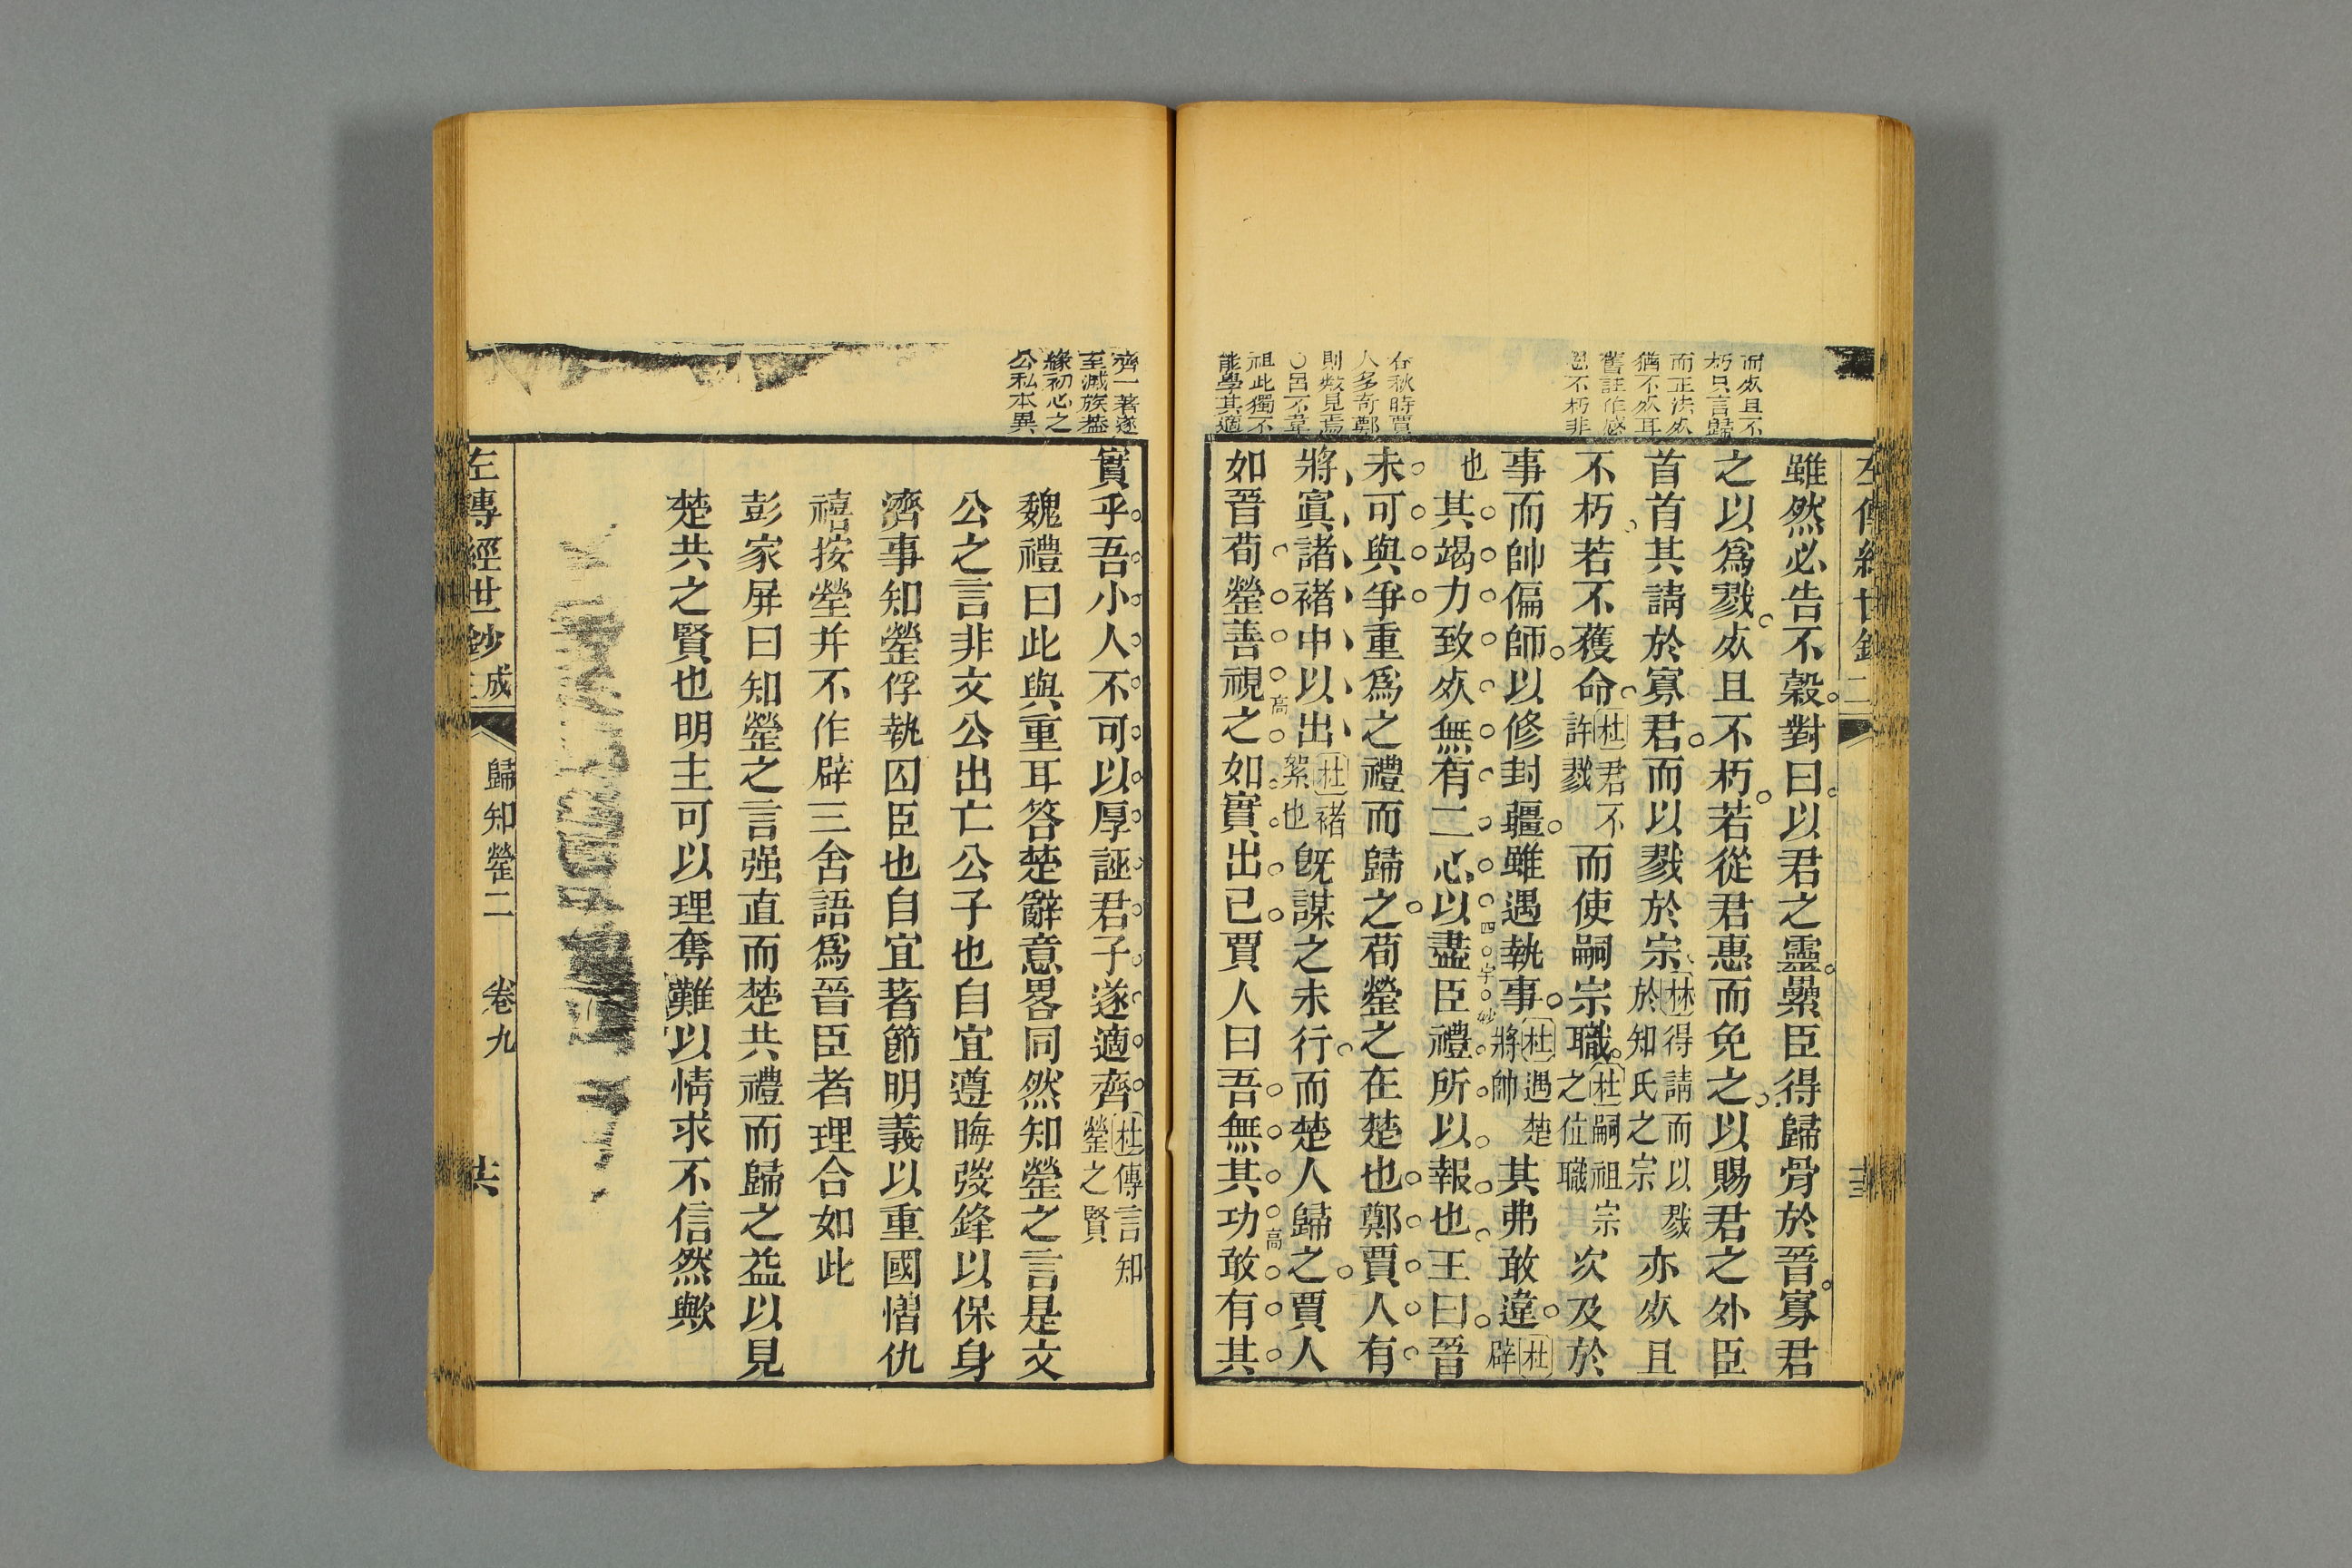 而㱙且不
朽只言歸
而正法㱙
猶不㱙耳
舊註作感
恩不朽非
春秋時賈
人多奇鄭
則數見焉
○呂不韋
祖此獨不
能學其適
雖然必告不穀對曰以君之靈纍臣得歸骨於晉寡君
之以爲戮㱙且不朽若從君惠而免之以賜君之外臣
首首其請於寡君而以戮於宗林得請而以戮於知氏之宗亦㱙且
不朽若不獲命杜君不許戮而使嗣宗職杜嗣祖宗之位職次及於
事而帥偏師以修封疆雖遇執事杜遇楚將帥其弗敢違杜辟
也其竭力致㱙無有二心以盡臣禮所以報也王曰晉
四字妙
未可與爭重爲之禮而歸之荀罃之在楚也鄭賈人有
將寘諸褚中以出杜褚絮也既謀之未行而楚人歸之賈人
如晉荀罃善視之如實出己賈人曰吾無其功敢有其
高
高
齊一著遂
至滅族葢
緣初心之
公私本異
實乎吾小人不可以厚誣君子遂適齊杜傳言知罃之賢
魏禮曰此與重耳答楚辭意畧同然知罃之言是文
公之言非文公出亡公子也自宜遵晦弢鋒以保身
濟事知罃俘執囚臣也自宜著節明義以重國慴仇
禧按罃并不作辟三舍語爲晉臣者理合如此
彭家屏曰知罃之言强直而楚共禮而歸之益以見
楚共之賢也明主可以理奪難以情求不信然歟
左傳經世鈔 成 歸知罃二 卷九